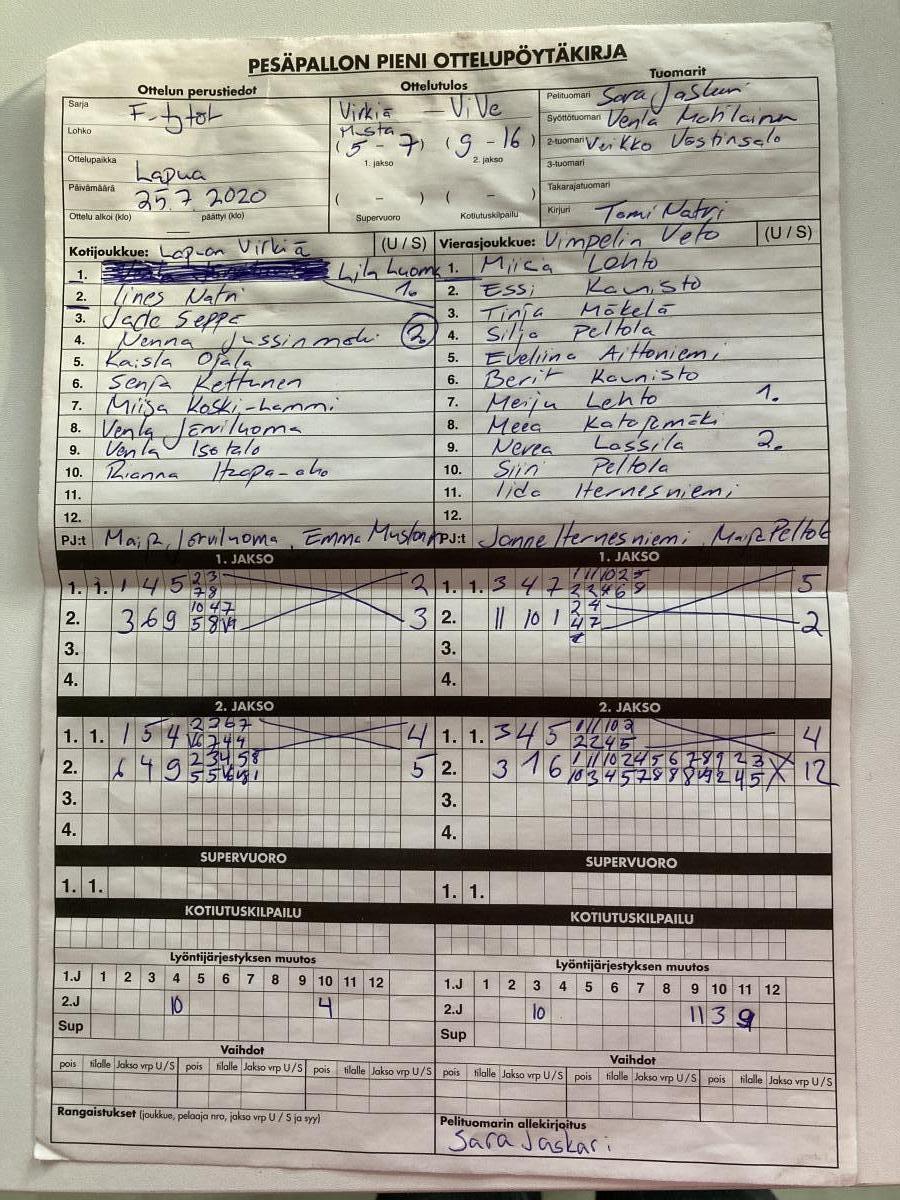 PESÄPALLON PIENI OTTELUPÖYTÄKIRJA
Ottelun perustiedot
Sarja F-tytöt
Lohko
Ottelupaikka Lapua
Päivämäärä 25.7 2020
Ottelu alkoi (klo) päättyi (klo)
Ottelutulos
Virkiä - ViVe
Musta
(5 - 7) (9 - 16)
1. jakso 2. jakso
( - ) ( - )
Supervuoro Kotiutuskilpailu
Tuomarit
Pelituomari Sara Jaskari
Syöttötuomari Venla
2-tuomari Veikko
3-tuomari
Takarajatuomari
Kirjuri Tomi Natri
Kotijoukkue: Lapuan Virkiä (U / S)
1. Lila Luoma
2. Iines Natri 1.
3. Jade Seppä
4. Nenna Jussinmäki 2.
5. Kaisla Ojala
6. Senja Kettunen
7. Miisa Koski-Lammi
8. Venla Järviluoma
9. Venla Isotalo
10. Rianna
11.
12.
PJ:t Maija Järviluoma, Emma Mustonen
Vierasjoukkue: Vimpelin Veto (U / S)
1. Miica Lehto
2. Essi Kaunisto
3. Tinja Mäkelä
4. Silja Peltola
5. Eveliina Aittoniemi
6. Berit Kaunisto
7. Meiju Lehto 1.
8. Meea Katajamäki
9. Nerea Lassila 2.
10. Siiri Peltola
11. Iida Hernesniemi
12.
PJ:t Janne Hernesniemi, Maija Peltola
1. JAKSO
1. 1. 1 4 5 2 3 2
7 8
2. 3 6 9 10 4 7 3
5 8
3.
4.
1. JAKSO
1. 1. 3 4 7 1 11 10 2 5 5
2 2 4 6 9
2. 11 10 1 2 4 2
4 7
3.
4.
2. JAKSO
1. 1. 1 5 4 2 3 6 7 4
7 4 4
2. 6 4 9 2 3 4 5 8 5
5 5
3.
4.
2. JAKSO
1. 1. 3 4 5 1 11 10 2 4
2 2 4 5
2. 3 1 6 1 11 10 2 4 5 6 7 8 9 2 3 12
10 3 4 5 7 8 8 2 4 5
3.
4.
SUPERVUORO
1. 1.
SUPERVUORO
1. 1.
KOTIUTUSKILPAILU
KOTIUTUSKILPAILU
Lyöntijärjestyksen muutos
1.J 1 2 3 4 5 6 7 8 9 10 11 12
2.J 10 4
Sup
Lyöntijärjestyksen muutos
1.J 1 2 3 4 5 6 7 8 9 10 11 12
2.J 10 11 3 9
Sup
Vaihdot
pois tilalle Jakso vrp U / S pois tilalle Jakso vrp U / S pois tilalle Jakso vrp U / S
Vaihdot
pois tilalle Jakso vrp U / S pois tilalle Jakso vrp U / S pois tilalle Jakso vrp U / S
Rangaistukset (joukkue, pelaaja nro, jakso vrp U / S ja syy)
Pelituomarin allekirjoitus
Sara Jaskari